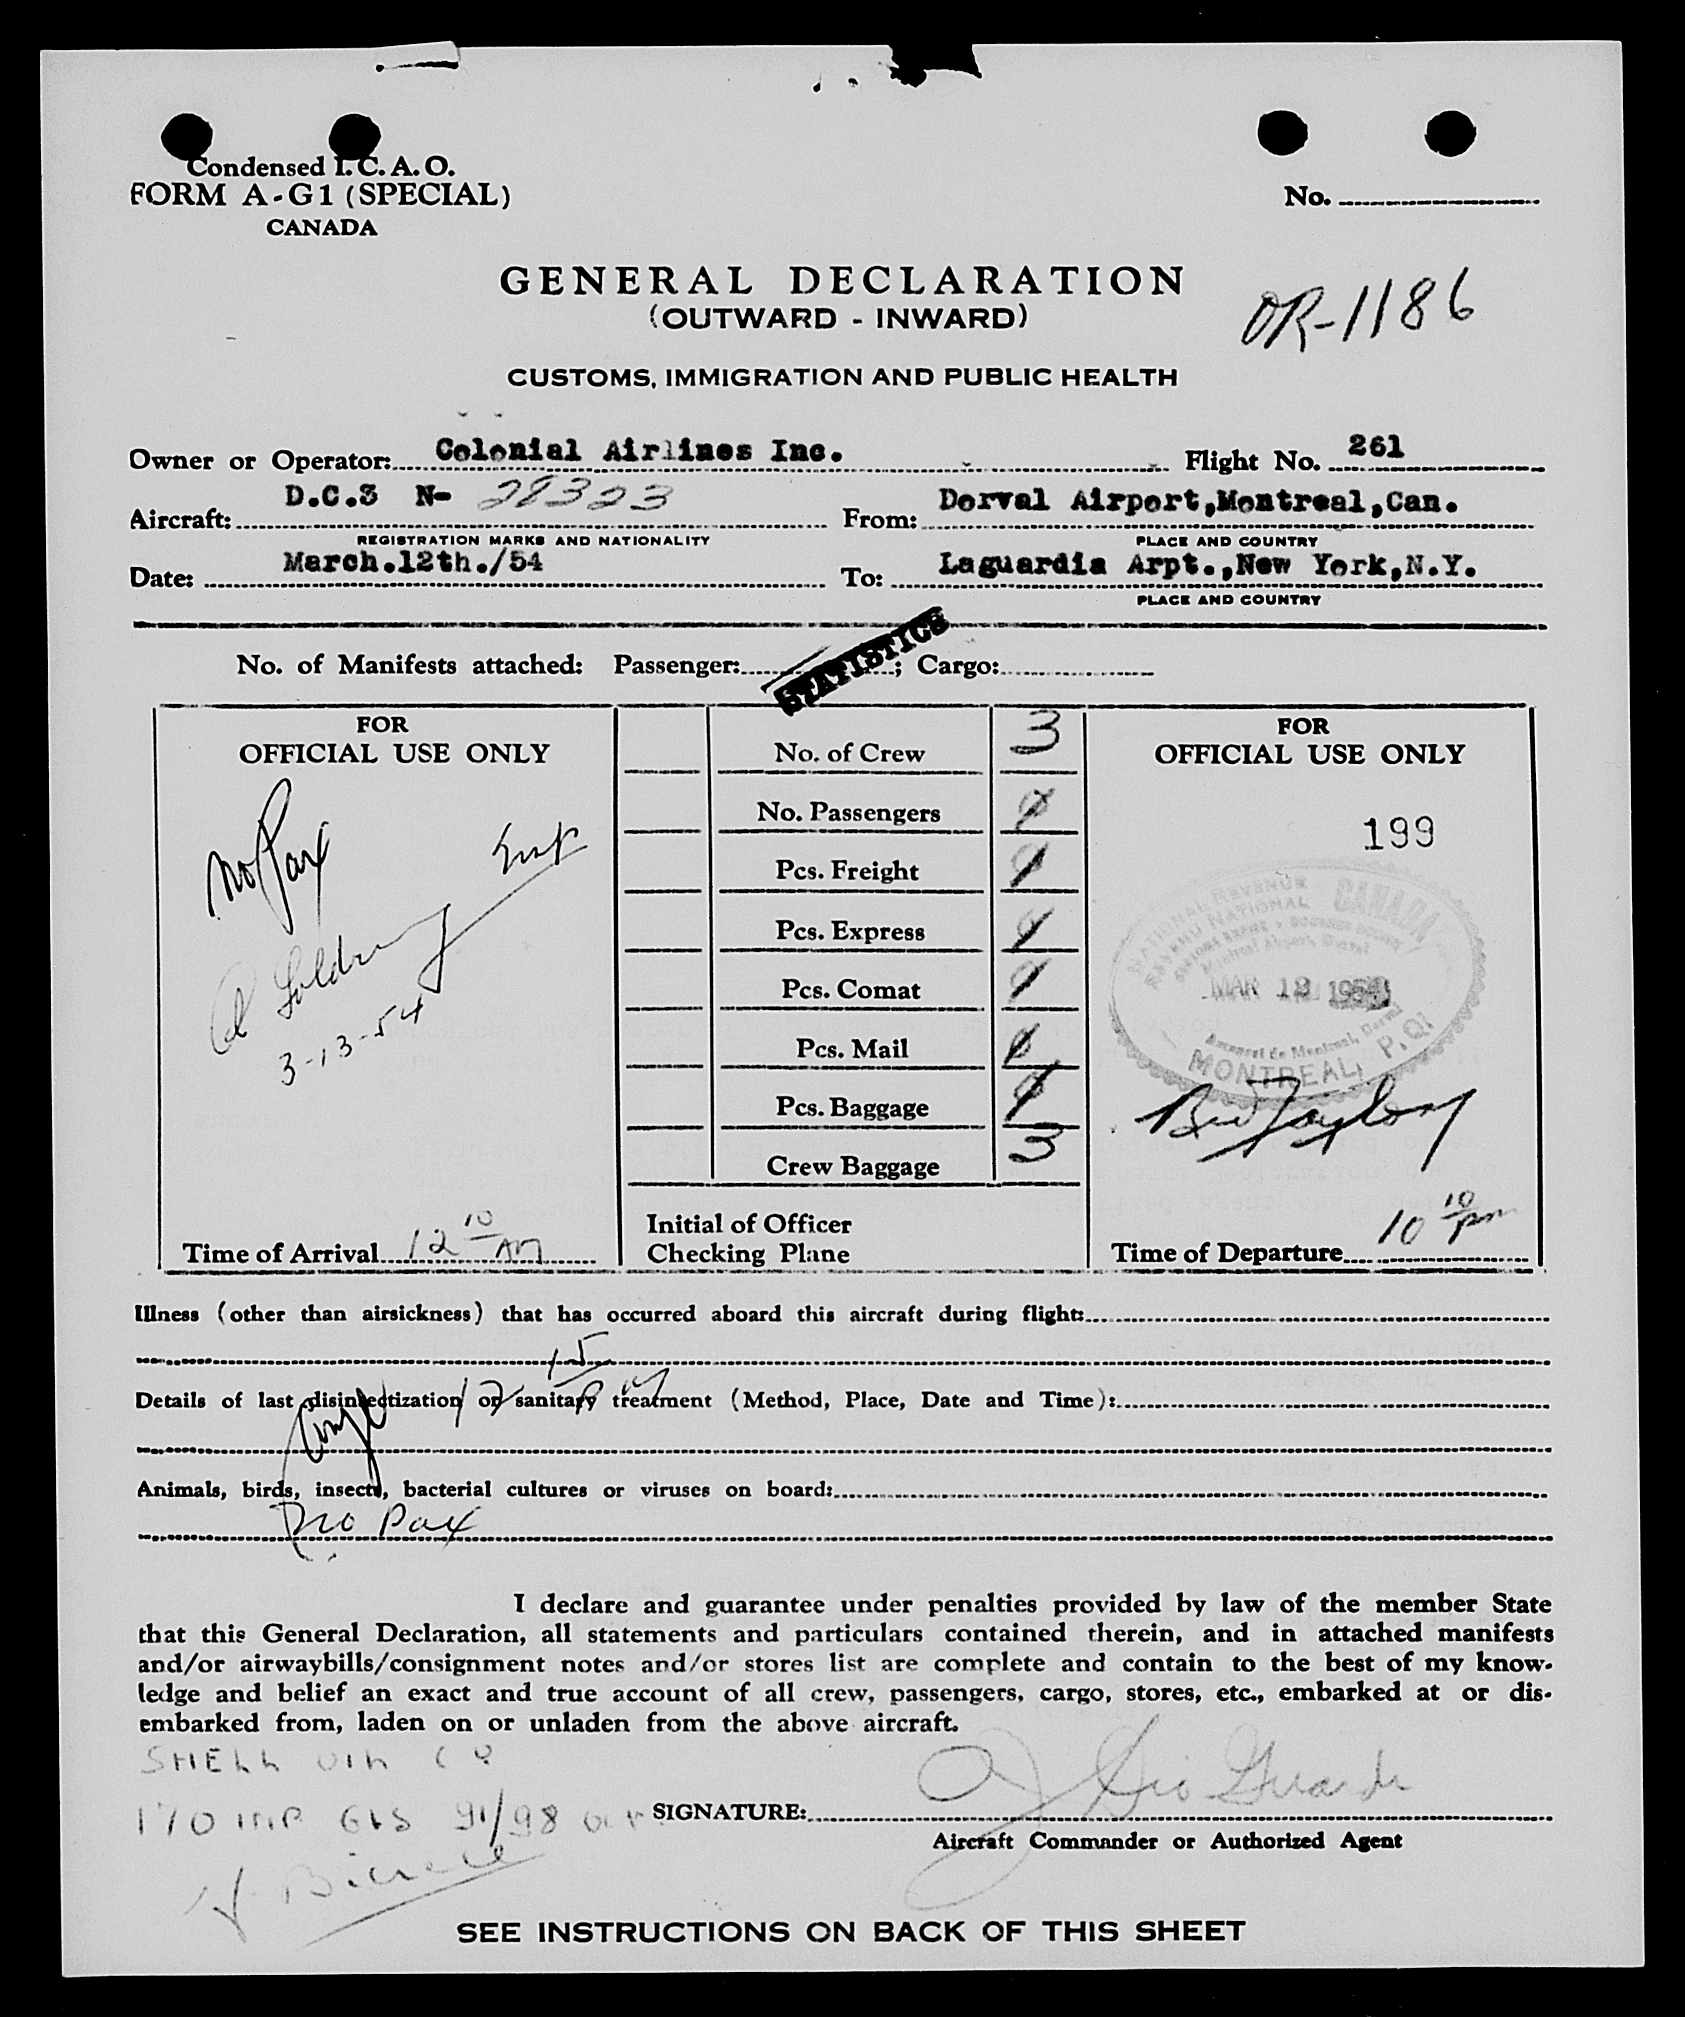 Condensed I.C.A.O.
FORM A-G1 (SPECIAL)
CANADA
No.
GENERAL DECLARATION
(OUTWARD - INWARD)
OR-1186
CUSTOMS, IMMIGRATION AND PUBLIC HEALTH
Owner or Operator: Colonial Airlines Inc. Flight No. 261
Aircraft: D.C.3 N- 28323 From: Dorval Airport,Montreal,Can.
REGISTRATION MARKS AND NATIONALITY PLACE AND COUNTRY
Date: March.12th./54 To: Laguardia Arpt.,New York,N.Y.
PLACE AND COUNTRY
STATISTICS
No. of Manifests attached: Passenger: ; Cargo:
FOR
OFFICIAL USE ONLY
No Pax
3-13-54
Time of Arrival 12 10 AM
No. of Crew 3
No. Passengers 0
Pcs. Freight 0
Pcs. Express 0
Pcs. Comat 0
Pcs. Mail 0
Pcs. Baggage 0
Crew Baggage 3
Initial of Officer
Checking Plane
FOR
OFFICIAL USE ONLY
199
NATIONAL REVENUE
REVENU NATIONAL
CANADA
MAR 12 1954
MONTREAL, P.Q.
Taylor
Time of Departure 10 10 pm
Illness (other than airsickness) that has occurred aboard this aircraft during flight:
15
Details of last disinsectization or sanitary treatment (Method, Place, Date and Time):
Animals, birds, insects, bacterial cultures or viruses on board:
No Pax
I declare and guarantee under penalties provided by law of the member State
that this General Declaration, all statements and particulars contained therein, and in attached manifests
and/or airwaybills/consignment notes and/or stores list are complete and contain to the best of my know-
ledge and belief an exact and true account of all crew, passengers, cargo, stores, etc., embarked at or dis-
embarked from, laden on or unladen from the above aircraft.
SHELL OIL CO
170 IMP GLS 91/98 OCT
SIGNATURE:
Aircraft Commander or Authorized Agent
SEE INSTRUCTIONS ON BACK OF THIS SHEET